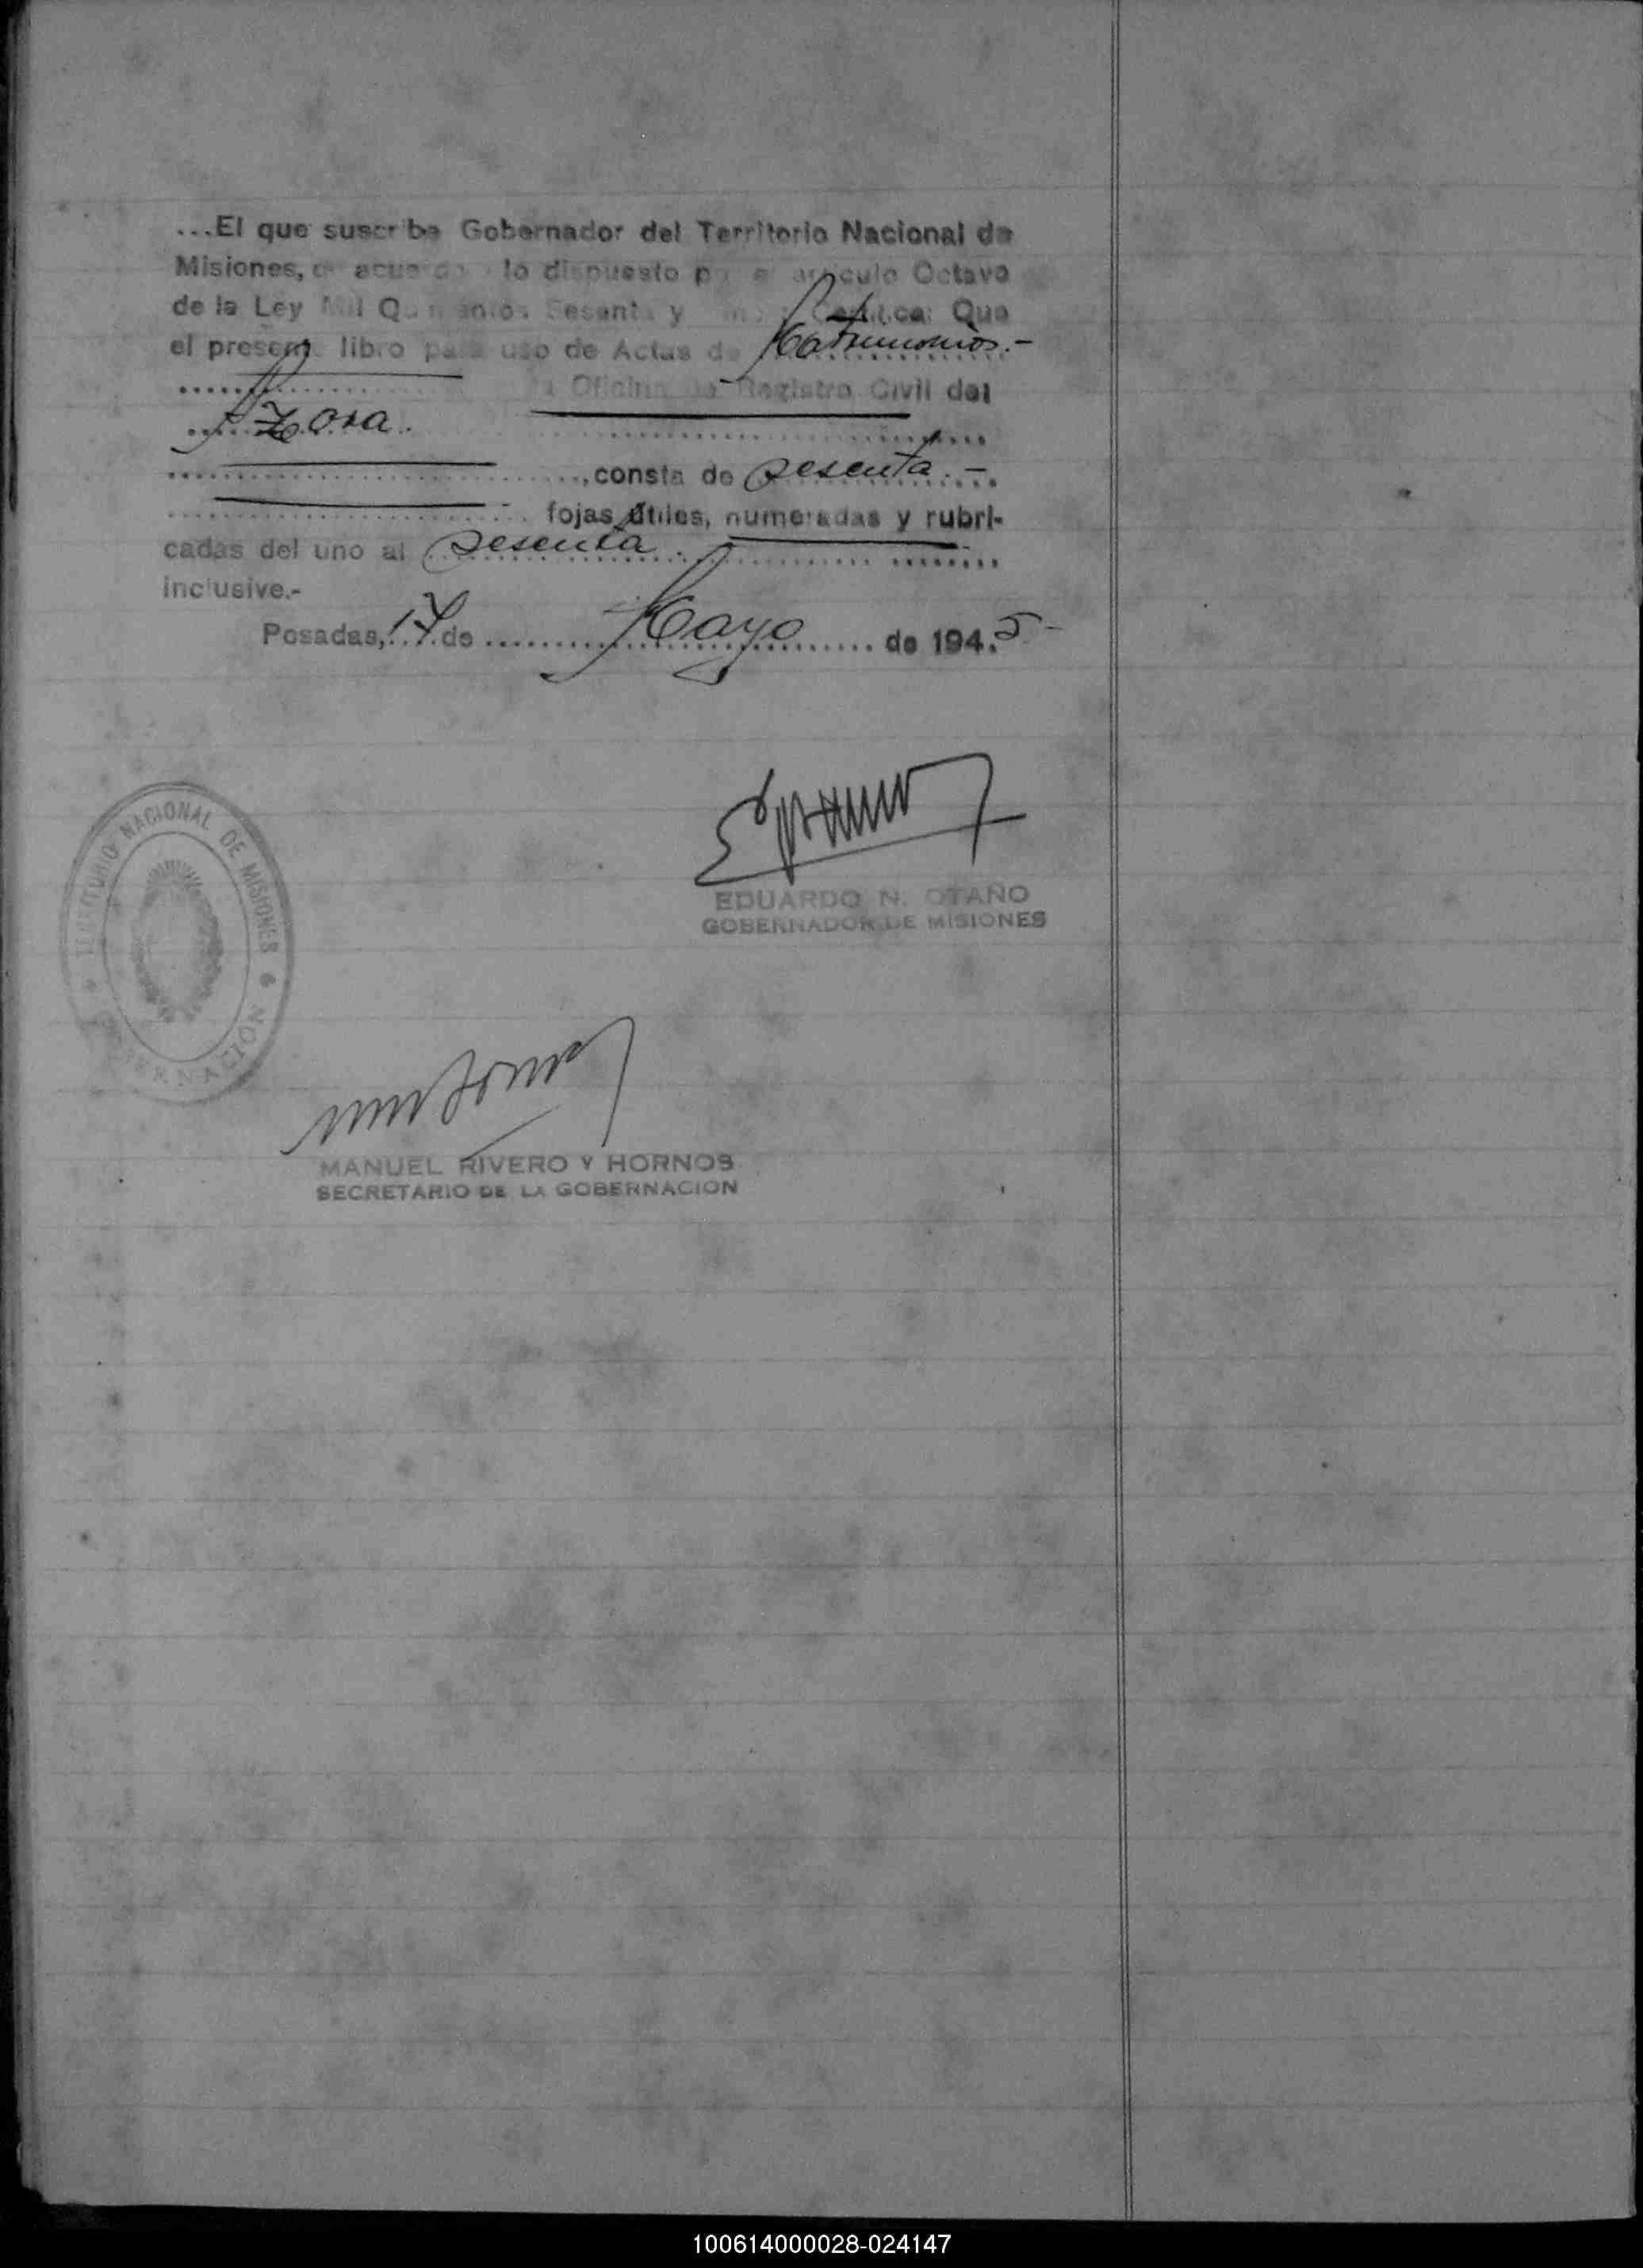 ...El que suscribe Gobernador del Territorio Nacional de
Misiones, de acuerdo a lo dispuesto por el artículo Octavo
de la Ley Mil Quinientos Sesenta y Certifica: Que
el presente libro para uso de Actas de Matrimonios.-
la Oficina de Registro Civil del
Azara.
, consta de sesenta.-
fojas útiles, numeradas y rubri-
cadas del uno al sesenta.
inclusive.-
Posadas, 17 de Mayo de 1945-
TERRITORIO NACIONAL DE MISIONES
GOBERNACION
EDUARDO N. OTAÑO
GOBERNADOR DE MISIONES
MANUEL RIVERO Y HORNOS
SECRETARIO DE LA GOBERNACION
100614000028-024147